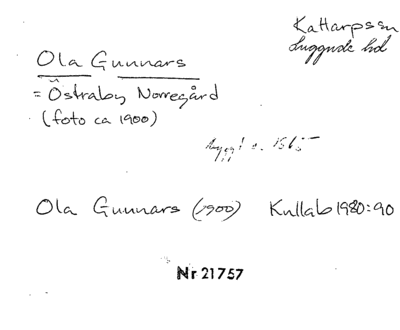 Kattarps sn
Luggude hd
Ola Gunnars
= Östraby Norregård
(foto ca 1900)
byggt c. 1565
Ola Gunnars (1900) Kullab 1980:90
Nr 21757